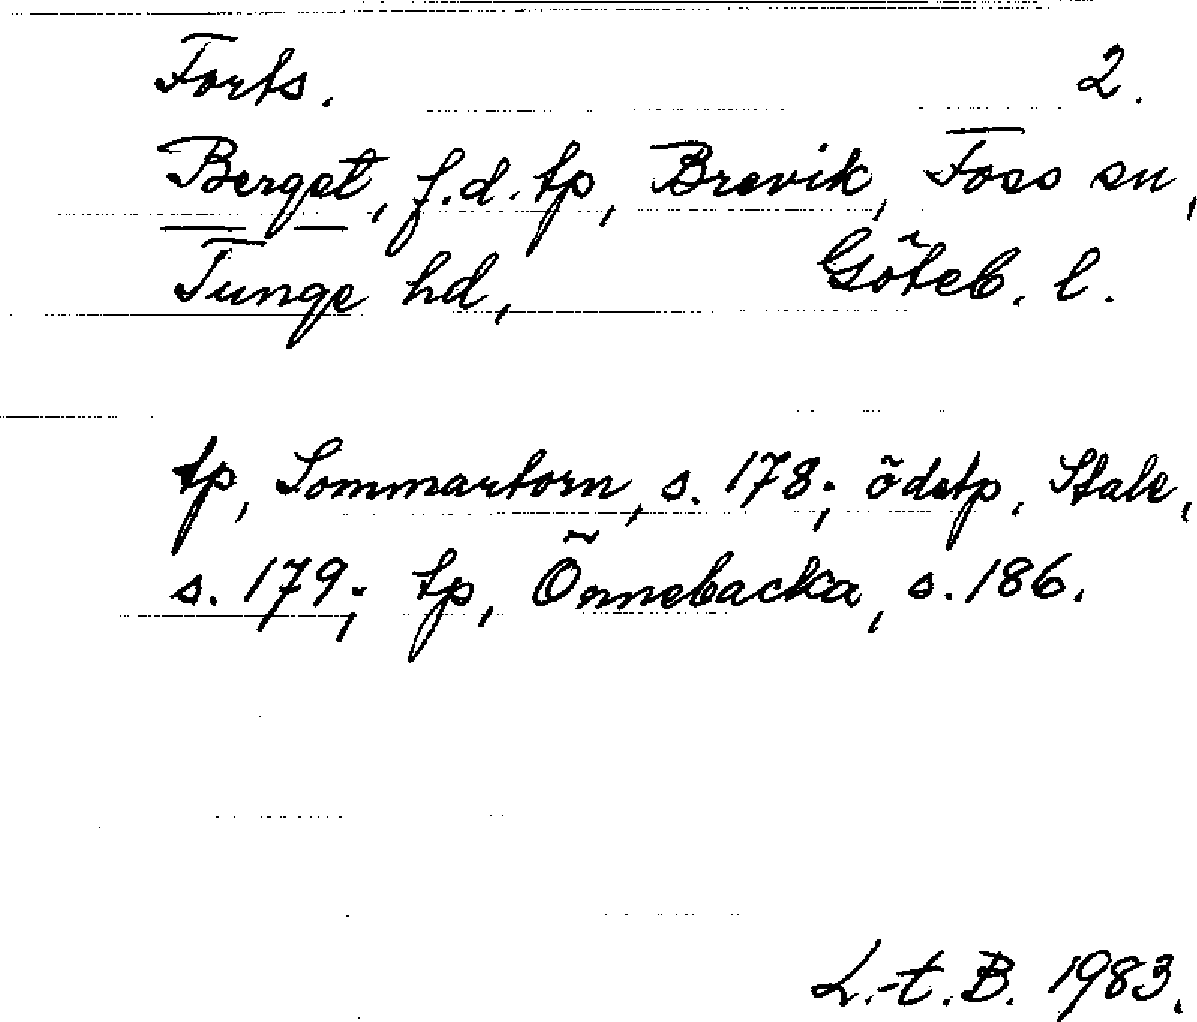 Forts. 2.
Berget, f.d. tp, Brevik, Foss sn,
Tunge hd, Göteb. l.
tp, Sommartorn, s. 178; ödetp. Stale,
s. 179; tp, Önnebacka, s. 186.
L.-t. B. 1983.